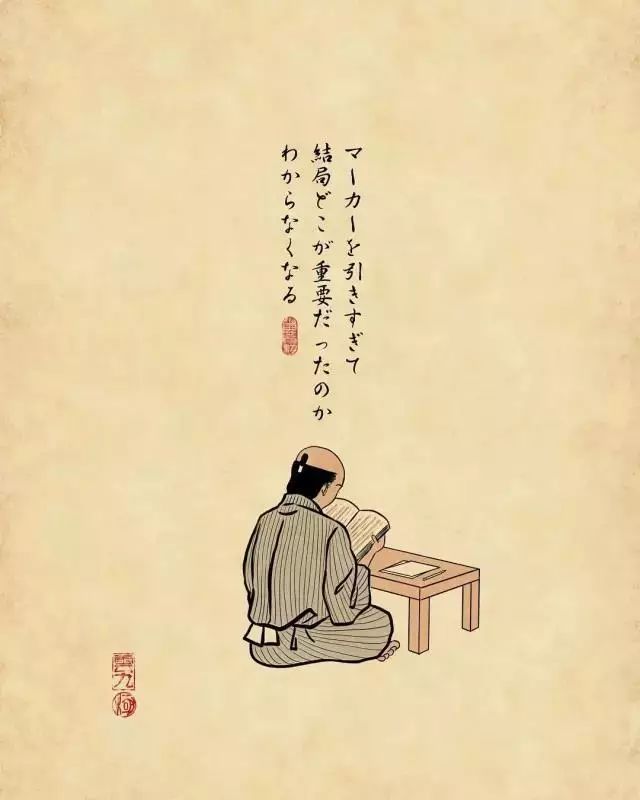 マーカーを引きすぎて
結局どこが重要だったのか
わからなくなる